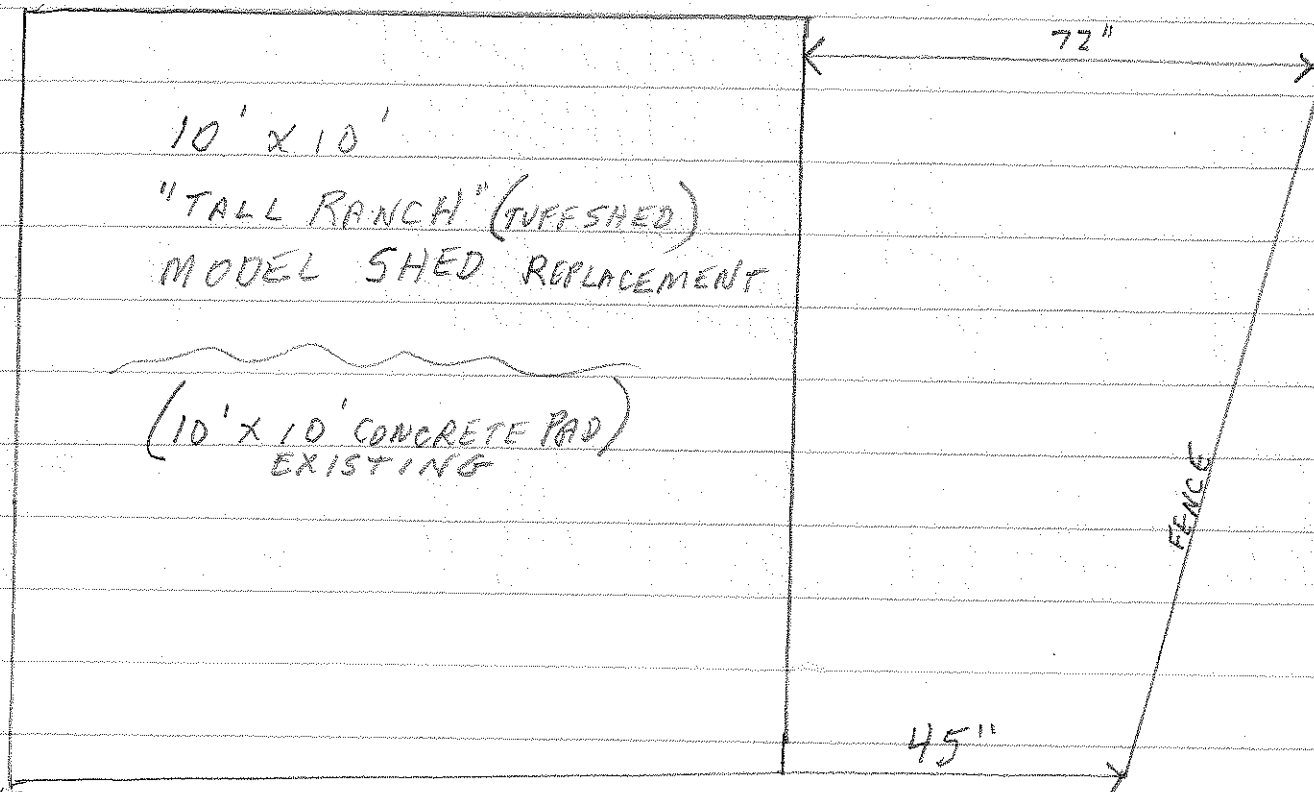 72"
10' x 10'
"TALL RANCH" (TUFF SHED)
MODEL SHED REPLACEMENT
(10' x 10' CONCRETE PAD)
EXISTING
FENCE
45"